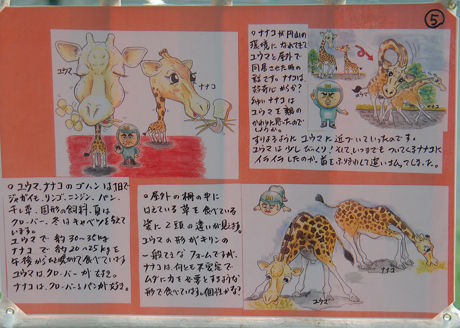 ⑤
○ナナコが円山の
環境になれてきて
ユウマと屋外で
同居させた時の
話です。ナナコは、
好奇心からか?
ユウマを親の
すりよるように ユウマに近づいていったのです。
ユウマは少しびっくり!そして、いつまでもついてくるナナコに
ユウマ
ナナコ
○ユウマ、ナナコのゴハンは1日で
ジャガイモ、リンゴ、ニンジン、パン、
干し草、固形の飼料、夏は
クローバー、冬はキャベツを与えて
います。
ユウマで約30〜35kg
ナナコで約20〜25kgを
午後から夜にかけて食べています
ユウマはクローバーが大好き。
ナナコは、クローバーとパンが大好き。
○屋外の柵の中に
はえている草を食べている
姿に2頭の違いが見えます。
ユウマの形がキリンの
一般てきなフォームですが、
ナナコは、何とも不安定で
ムダに力を必要とするような
形で食べています。個性かな?
ユウマ
ナナコ